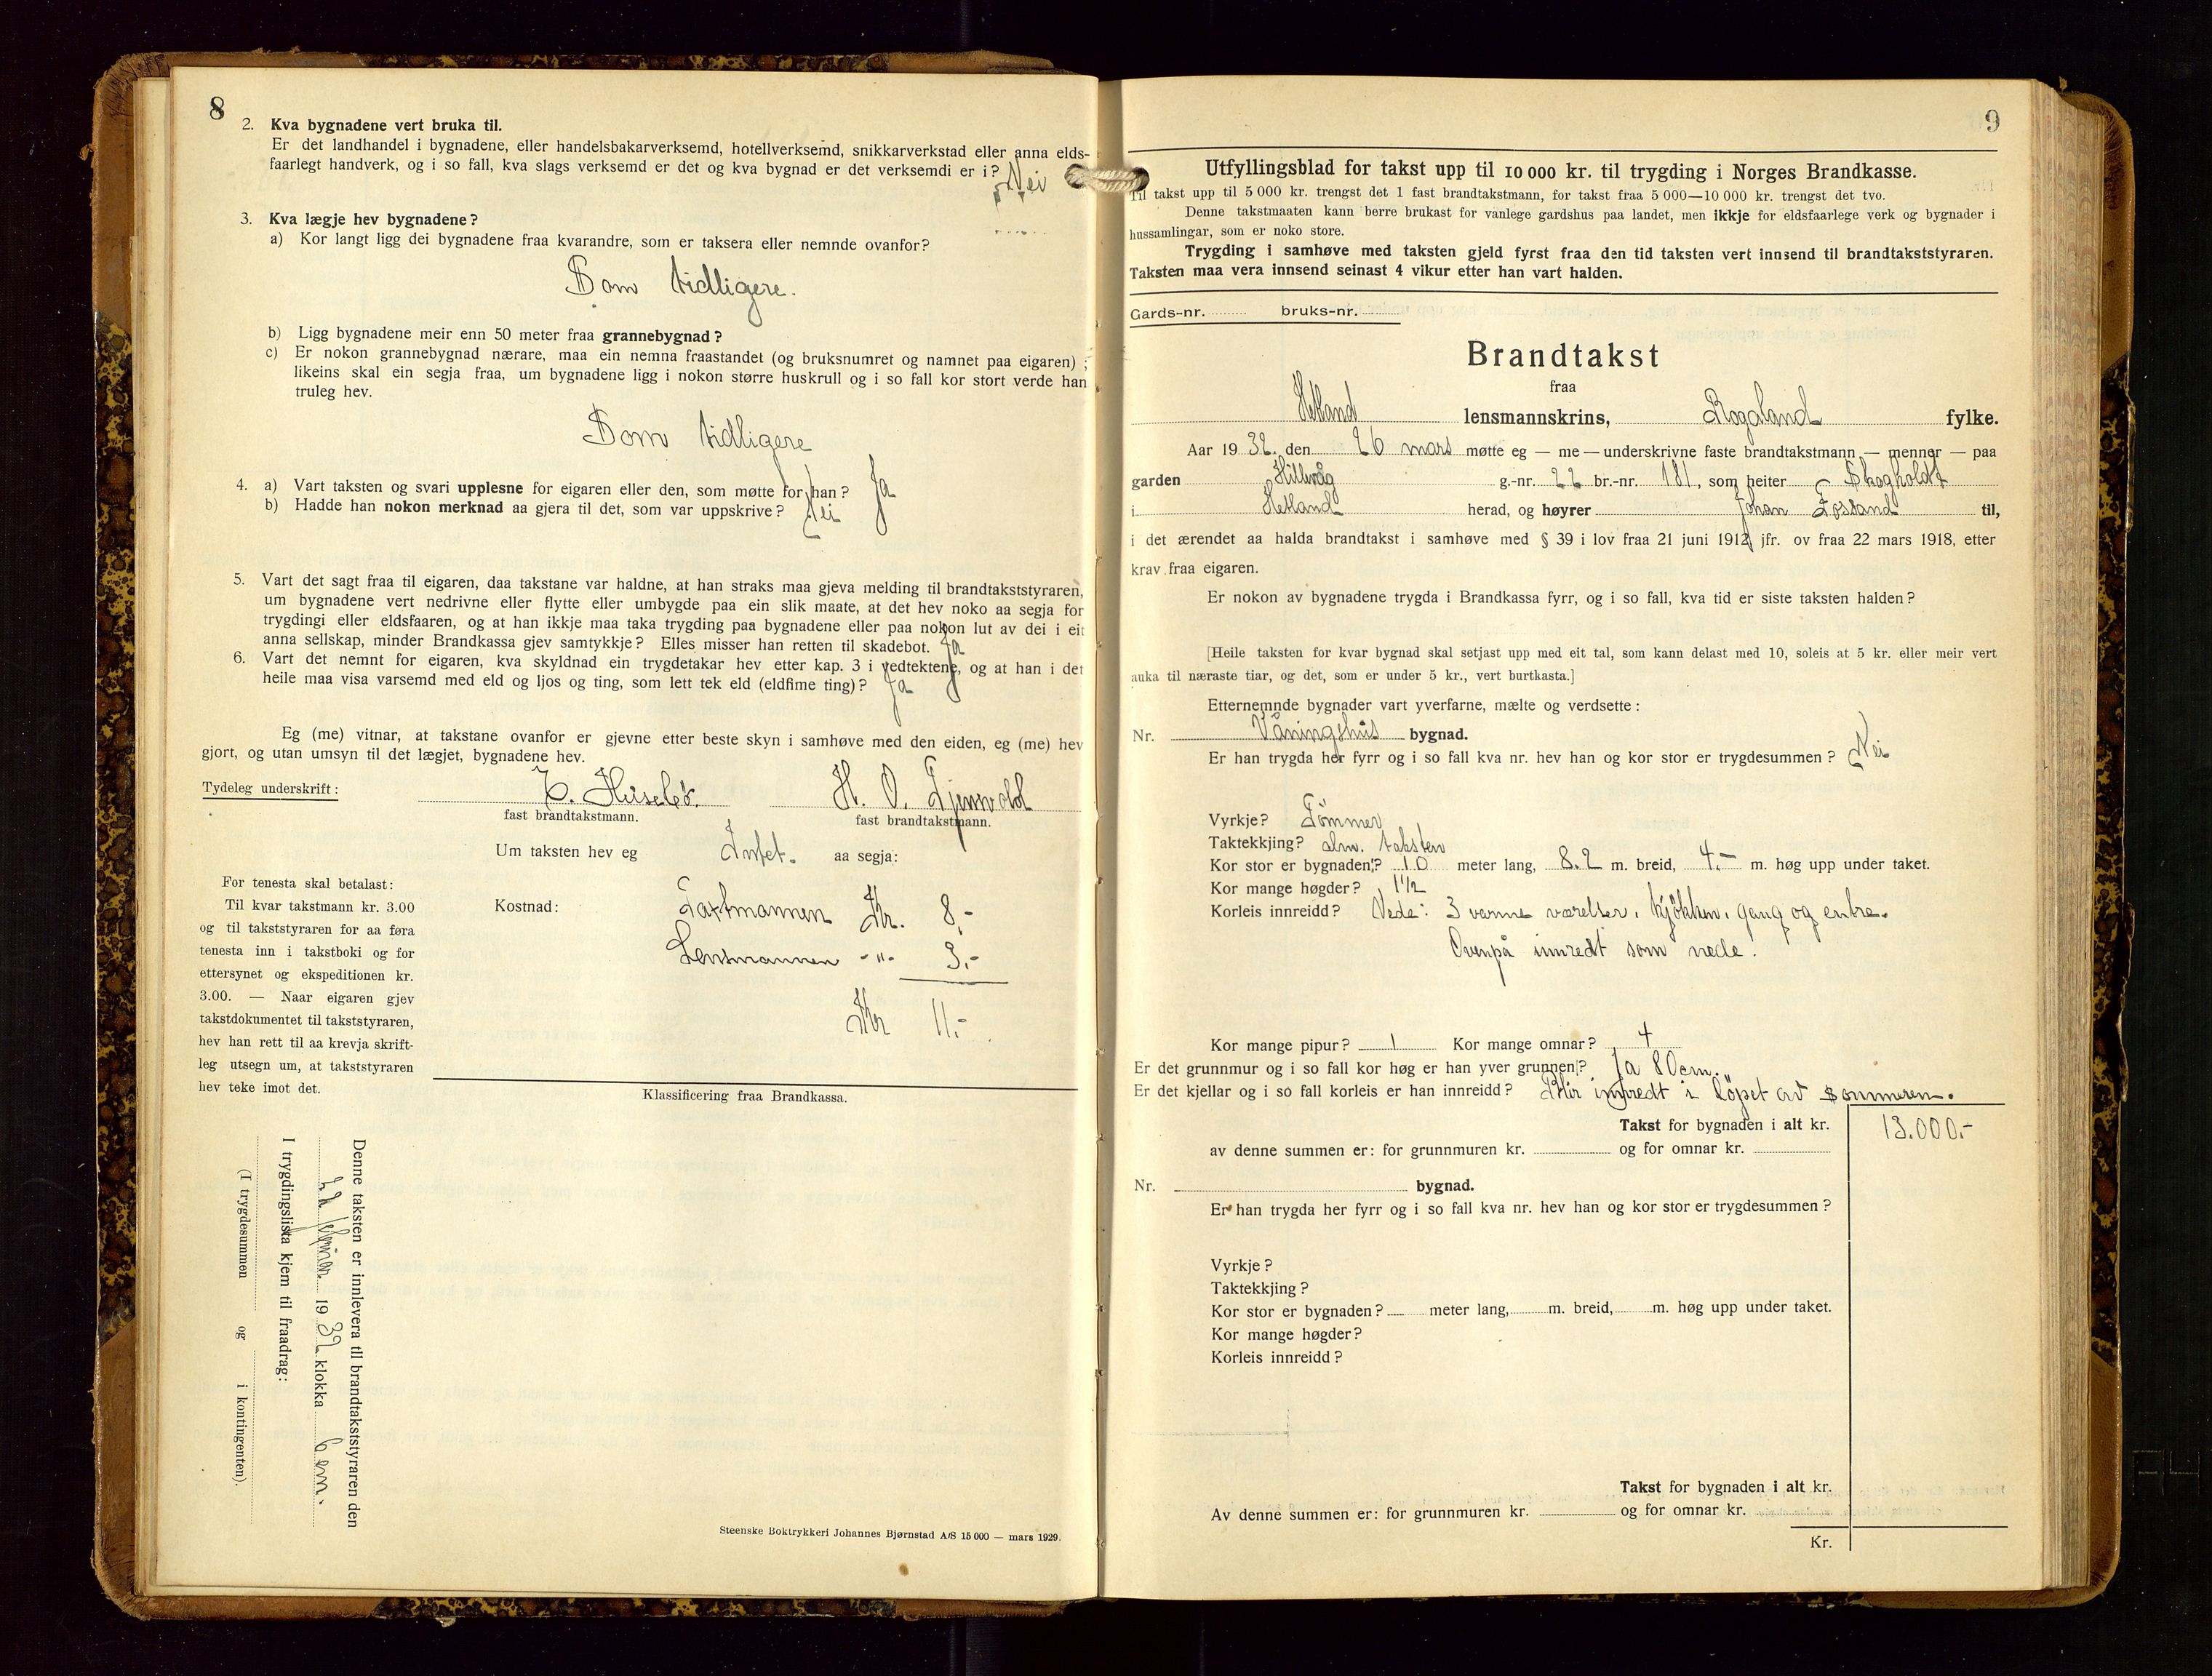 8
2. Kva bygnadene vert bruka til.
Er det landhandel i bygnadene, eller handelsbakarverksemd, hotellverksemd, snikkarverkstad eller anna elds-
faarlegt handverk, og i so fall, kva slags verksemd er det og kva bygnad er det verksemdi er i? Nei
3. Kva lægje hev bygnadene?
a) Kor langt ligg dei bygnadene fraa kvarandre, som er taksera eller nemnde ovanfor?
Som tidligere.
b) Ligg bygnadene meir enn 50 meter fraa grannebygnad?
c) Er nokon grannebygnad nærare, maa ein nemna fraastandet (og bruksnumret og namnet paa eigaren) ;
likeins skal ein segja fraa, um bygnadene ligg i nokon større huskrull og i so fall kor stort verde han
truleg hev.
Som tidligere
4. a) Vart taksten og svari upplesne for eigaren eller den, som møtte for han? Ja
b) Hadde han nokon merknad aa gjera til det, som var uppskrive? Nei
5. Vart det sagt fraa til eigaren, daa takstane var haldne, at han straks maa gjeva melding til brandtakststyraren,
um bygnadene vert nedrivne eller flytte eller umbygde paa ein slik maate, at det hev noko aa segja for
trygdingi eller eldsfaaren, og at han ikkje maa taka trygding paa bygnadene eller paa nokon lut av dei i eit
anna sellskap, minder Brandkassa gjev samtykkje? Elles misser han retten til skadebot. Ja
6. Vart det nemnt for eigaren, kva skyldnad ein trygdetakar hev etter kap. 3 i vedtektene, og at han i det
heile maa visa varsemd med eld og ljos og ting, som lett tek eld (eldfime ting)? Ja
Eg (me) vitnar, at takstane ovanfor er gjevne etter beste skyn i samhøve med den eiden, eg (me) hev
gjort, og utan umsyn til det lægjet, bygnadene hev.
Tydeleg underskrift: H. O.
fast brandtakstmann. fast brandtakstmann.
Um taksten hev eg Intet. aa segja:
For tenesta skal betalast:
Til kvar takstmann kr. 3.00
og til takststyraren for aa føra
tenesta inn i takstboki og for
ettersynet og ekspeditionen kr.
3.00. — Naar eigaren gjev
takstdokumentet til takststyraren,
hev han rett til aa krevja skrift-
leg utsegn um, at takststyraren
hev teke imot det.
Kostnad: Taxtmannen Kr. 8,-
Lensmannen -"- 3,-
Kr 11,-
Klassificering fraa Brandkassa.
Denne taksten er innlevera til brandtakststyraren den
1932 klokka 6 em.
I trygdingslista kjem til fraadrag:
(I trygdesummen og i kontingenten).
Steenske Boktrykkeri Johannes Bjørnstad A/S 15 000 — mars 1929.
9
Utfyllingsblad for takst upp til 10 000 kr. til trygding i Norges Brandkasse.
Til takst upp til 5 000 kr. trengst det 1 fast brandtakstmann, for takst fraa 5 000—10 000 kr. trengst det tvo.
Denne takstmaaten kann berre brukast for vanlege gardshus paa landet, men ikkje for eldsfaarlege verk og bygnader i
hussamlingar, som er noko store.
Trygding i samhøve med taksten gjeld fyrst fraa den tid taksten vert innsend til brandtakststyraren.
Taksten maa vera innsend seinast 4 vikur etter han vart halden.
Gards-nr. bruks-nr.
Brandtakst
fraa
Hetland lensmannskrins, Rogaland fylke.
Aar 1932. den 26 mars møtte eg — me — underskrivne faste brandtakstmann — menner — paa
garden Hillevåg g.-nr. 22 br.-nr. 181, som heiter Skogholdt
i Hetland herad, og høyrer Johan Tøssand til,
i det ærendet aa halda brandtakst i samhøve med § 39 i lov fraa 21 juni 1912, jfr. ov fraa 22 mars 1918, etter
krav fraa eigaren.
Er nokon av bygnadene trygda i Brandkassa fyrr, og i so fall, kva tid er siste taksten halden?
[Heile taksten for kvar bygnad skal setjast upp med eit tal, som kann delast med 10, soleis at 5 kr. eller meir vert
auka til næraste tiar, og det, som er under 5 kr., vert burtkasta.]
Etternemnde bygnader vart yverfarne, mælte og verdsette:
Nr. Våningshus bygnad.
Er han trygda her fyrr og i so fall kva nr. hev han og kor stor er trygdesummen? Nei
Vyrkje? Tømmer
Taktekkjing? alm. taksten
Kor stor er bygnaden? 10 meter lang, 8.2 m. breid, 4.- m. høg upp under taket.
Kor mange høgder? 1 1/2
Korleis innreidd? Nede: 3 varme værelser, kjøkken, gang og entre.
Ovenpå innredt som nede.
Kor mange pipur? 1 Kor mange omnar? 4
Er det grunnmur og i so fall kor høg er han yver grunnen? Ja 80cm.
Er det kjellar og i so fall korleis er han innreidd? Blir innredt i løpet av sommeren.
Takst for bygnaden i alt kr. 13.000.-
av denne summen er: for grunnmuren kr. og for omnar kr.
Nr. bygnad.
Er han trygda her fyrr og i so fall kva nr. hev han og kor stor er trygdesummen?
Vyrkje?
Taktekkjing?
Kor stor er bygnaden? meter lang, m. breid, m. høg upp under taket.
Kor mange høgder?
Korleis innreidd?
Takst for bygnaden i alt kr.
Av denne summen er: for grunnmuren kr. og for omnar kr.
Kr.